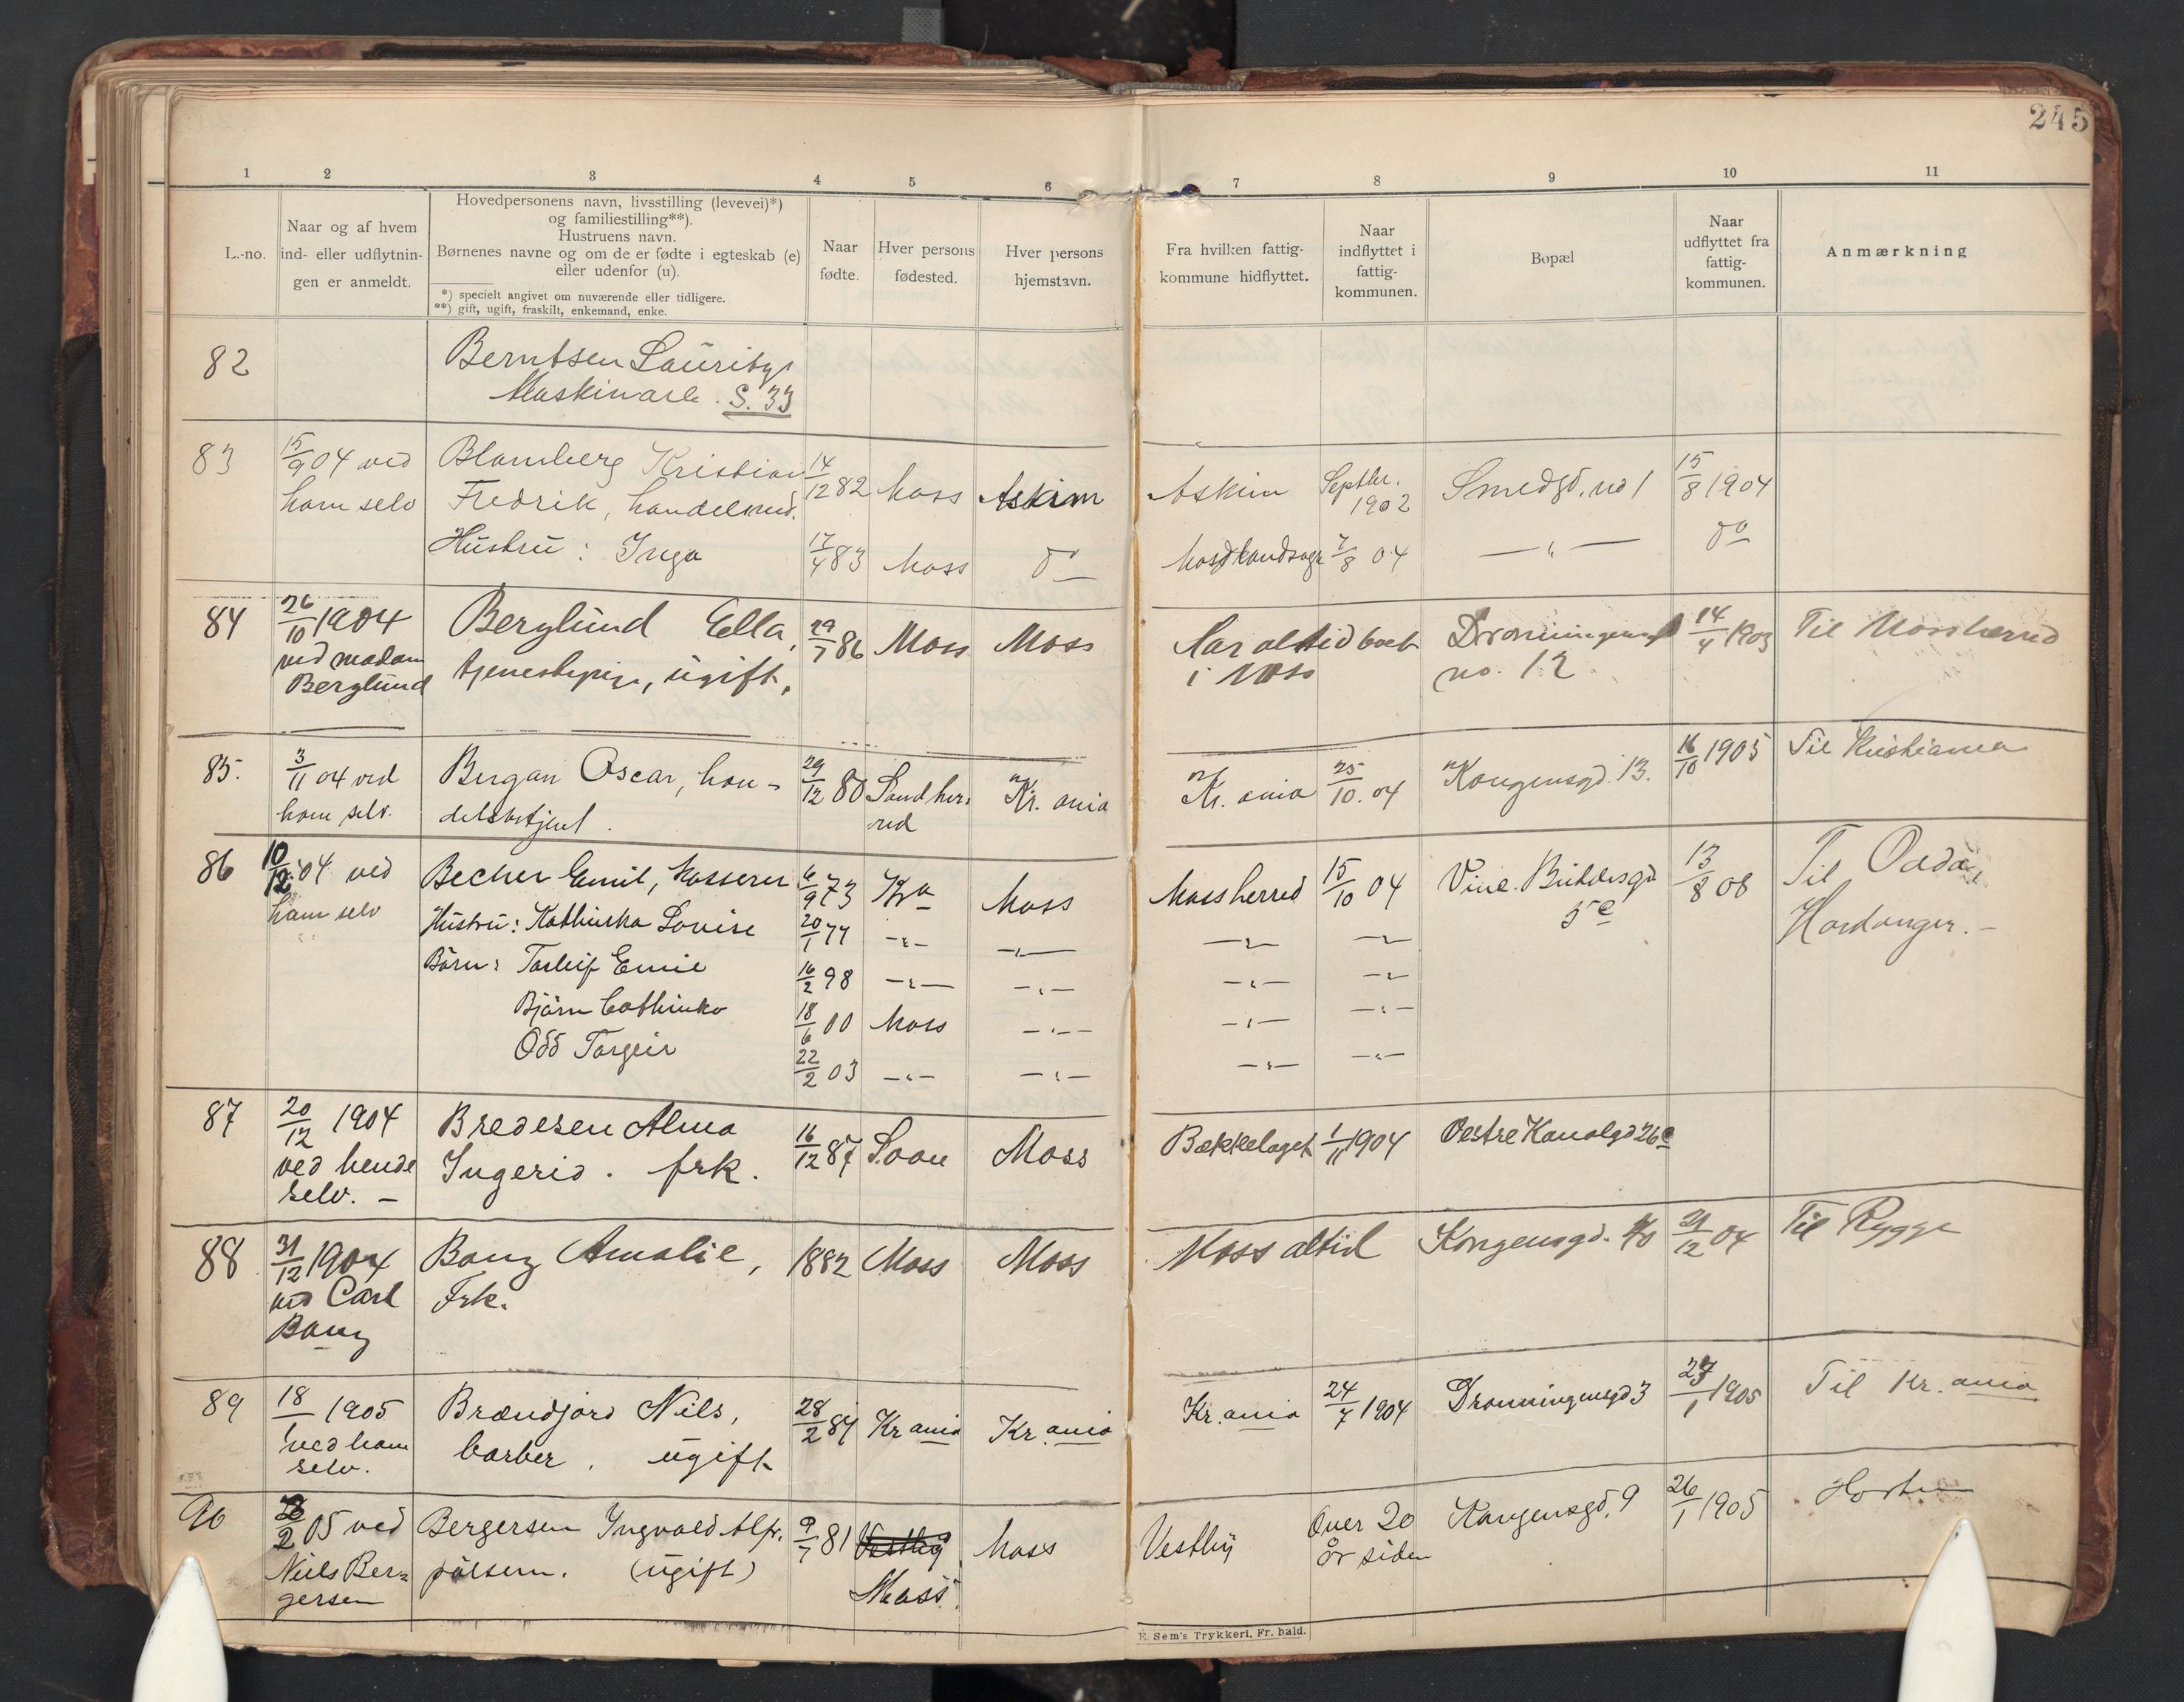 245
1 2 3 4 5 6 7 8 9 10 11
L.-no.
Naar og af hvem
ind- eller udflytnin-
gen er anmeldt.
Hovedpersonens navn, livsstilling (levevei)*)
og familiestilling**).
Hustruens navn.
Børnenes navne og om de er fødte i egteskab (e)
eller udenfor (u).
*) specielt angivet om nuværende eller tidligere.
**) gift, ugift, fraskilt, enkemand, enke.
Naar
fødte.
Hver persons
fødested.
Hver persons
hjemstavn.
Fra hvilken fattig-
kommune hidflyttet.
Naar
indflyttet i
fattig-
kommunen.
Bopæl
Naar
udflyttet fra
fattig-
kommunen.
Anmærkning
82 Berntsen Lauritz
Maskinarb. S. 33
83 15/9 04 ved Blomberg Kristian 14/12 82 Moss Askim Askim Septbr. Smedgd. no 1 15/8 1904
ham selv Fredrik, 1902
Hustru: Inga 17/4 83 Moss do 7/8 04 — " — do
84 26/10 1904 Berglund Ella, 29/7 86 Moss Moss Har altid boet 14/4 1903 Til Moss herred
ved madam tjenestepige, ugift. i Moss no. 12
Berglund
85. 3/11 04 ved Bergan Oscar, han- 29/12 80 Sandher- Kr.ania Kr.ania 25/10. 04 Kongensgd. 13. 16/10 1905 Til Kristiania
ham selv. delsbetjent. red
86 10/12 04 ved Becher Emil, kasserer 6/9 73 Kra Moss Moss herred 15/10 04 13/8 06 Til Odda,
ham selv Hustru: Kathinka Lovise 20/1 77 — " — — " — — " — — " — 5c Hardanger. –
Børn: Torleif Emil 16/2 98 — " — — " — — " — — " —
Bjørn Cathinko 18/6 00 Moss — " — — " — — " —
Odd Torgeir 22/2 03 — " — — " — — " — — " —
87 20/12 1904 Bredesen Alma 16/12 87 Soon Moss Bækkelaget 1/11 1904 Oestre Kanalgd 26c
ved hende Ingerid. frk.
selv. –
88 31/12 1904 Bang Amalie, 1882 Moss Moss Moss altid Kongensgd. 31/12 04 Til Rygge
ved Carl Frk.
Bang
89 18/1 1905 Brændjord Nils, 28/2 87 Kr ania Kr.ania Kr.ania 24/7 1904 Dronningensgd 3 27/1 1905 Til Kr.ania
ved ham barber, ugift
selv.
90 2 05 ved Bergersen Ingvald Alfr. 9/7 81 Vestby Moss Vestby Over 20 Kongensgd. 9 26/1 1905 Horten
Niels Ber- pølsem. (ugift) Moss. år siden
gersen
E. Sem's Trykkeri, Fr. hald.